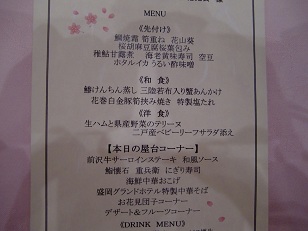 MENU
《先付け》
鯛焼霜 筍重ね 花山葵
桜胡麻豆腐桜葉包み
稚鮎甘露煮 海老黄味寿司 空豆
ホタルイカ うるい酢味噌
《和 食》
鰆けんちん蒸し 三陸若布入り蟹あんかけ
花巻白金豚筍挟み焼き 特製塩たれ
《洋 食》
生ハムと県産野菜のテリーヌ
二戸産ベビーリーフサラダ添え
【本日の屋台コーナー】
前沢牛サーロインステーキ 和風ソース
鮨懐石 重兵衛 にぎり寿司
海鮮中華おこげ
盛岡グランドホテル特製中華そば
お花見団子コーナー
デザート＆フルーツコーナー
《DRINK MENU》